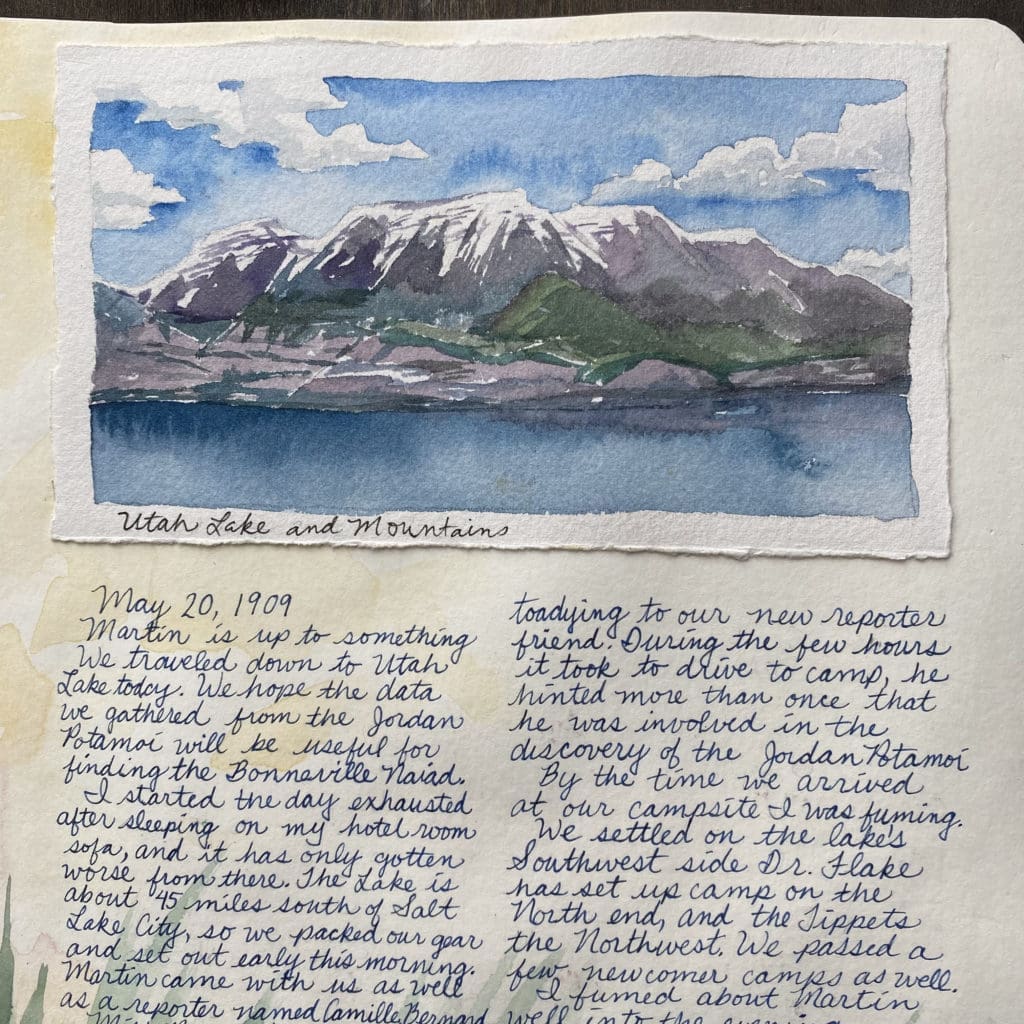 Utah Lake and Mountains
May 20, 1909
Martin is up to something
We traveled down to Utah
Lake today. We hope the data
we gathered from the Jordan
Potamoi will be useful for
finding the Bonneville Naiad.
I started the day exhausted
after sleeping on my hotel room
sofa, and it has only gotten
worse from there. The Lake is
about 45 miles south of Salt
Lake City, so we packed our gear
and set out early this morning.
Martin came with us as well
as a reporter named Camille Bernard
toadying to our new reporter
friend. During the few hours
it took to drive to camp, he
hinted more than once that
he was involved in the
discovery of the Jordan Potamoi
By the time we arrived
at our campsite I was fuming.
We settled on the lake's
Southwest side Dr. Flake
has set up camp on the
North end, and the Tippets
the Northwest. We passed a
few newcomer camps as well.
I fumed about Martin
well into the evening